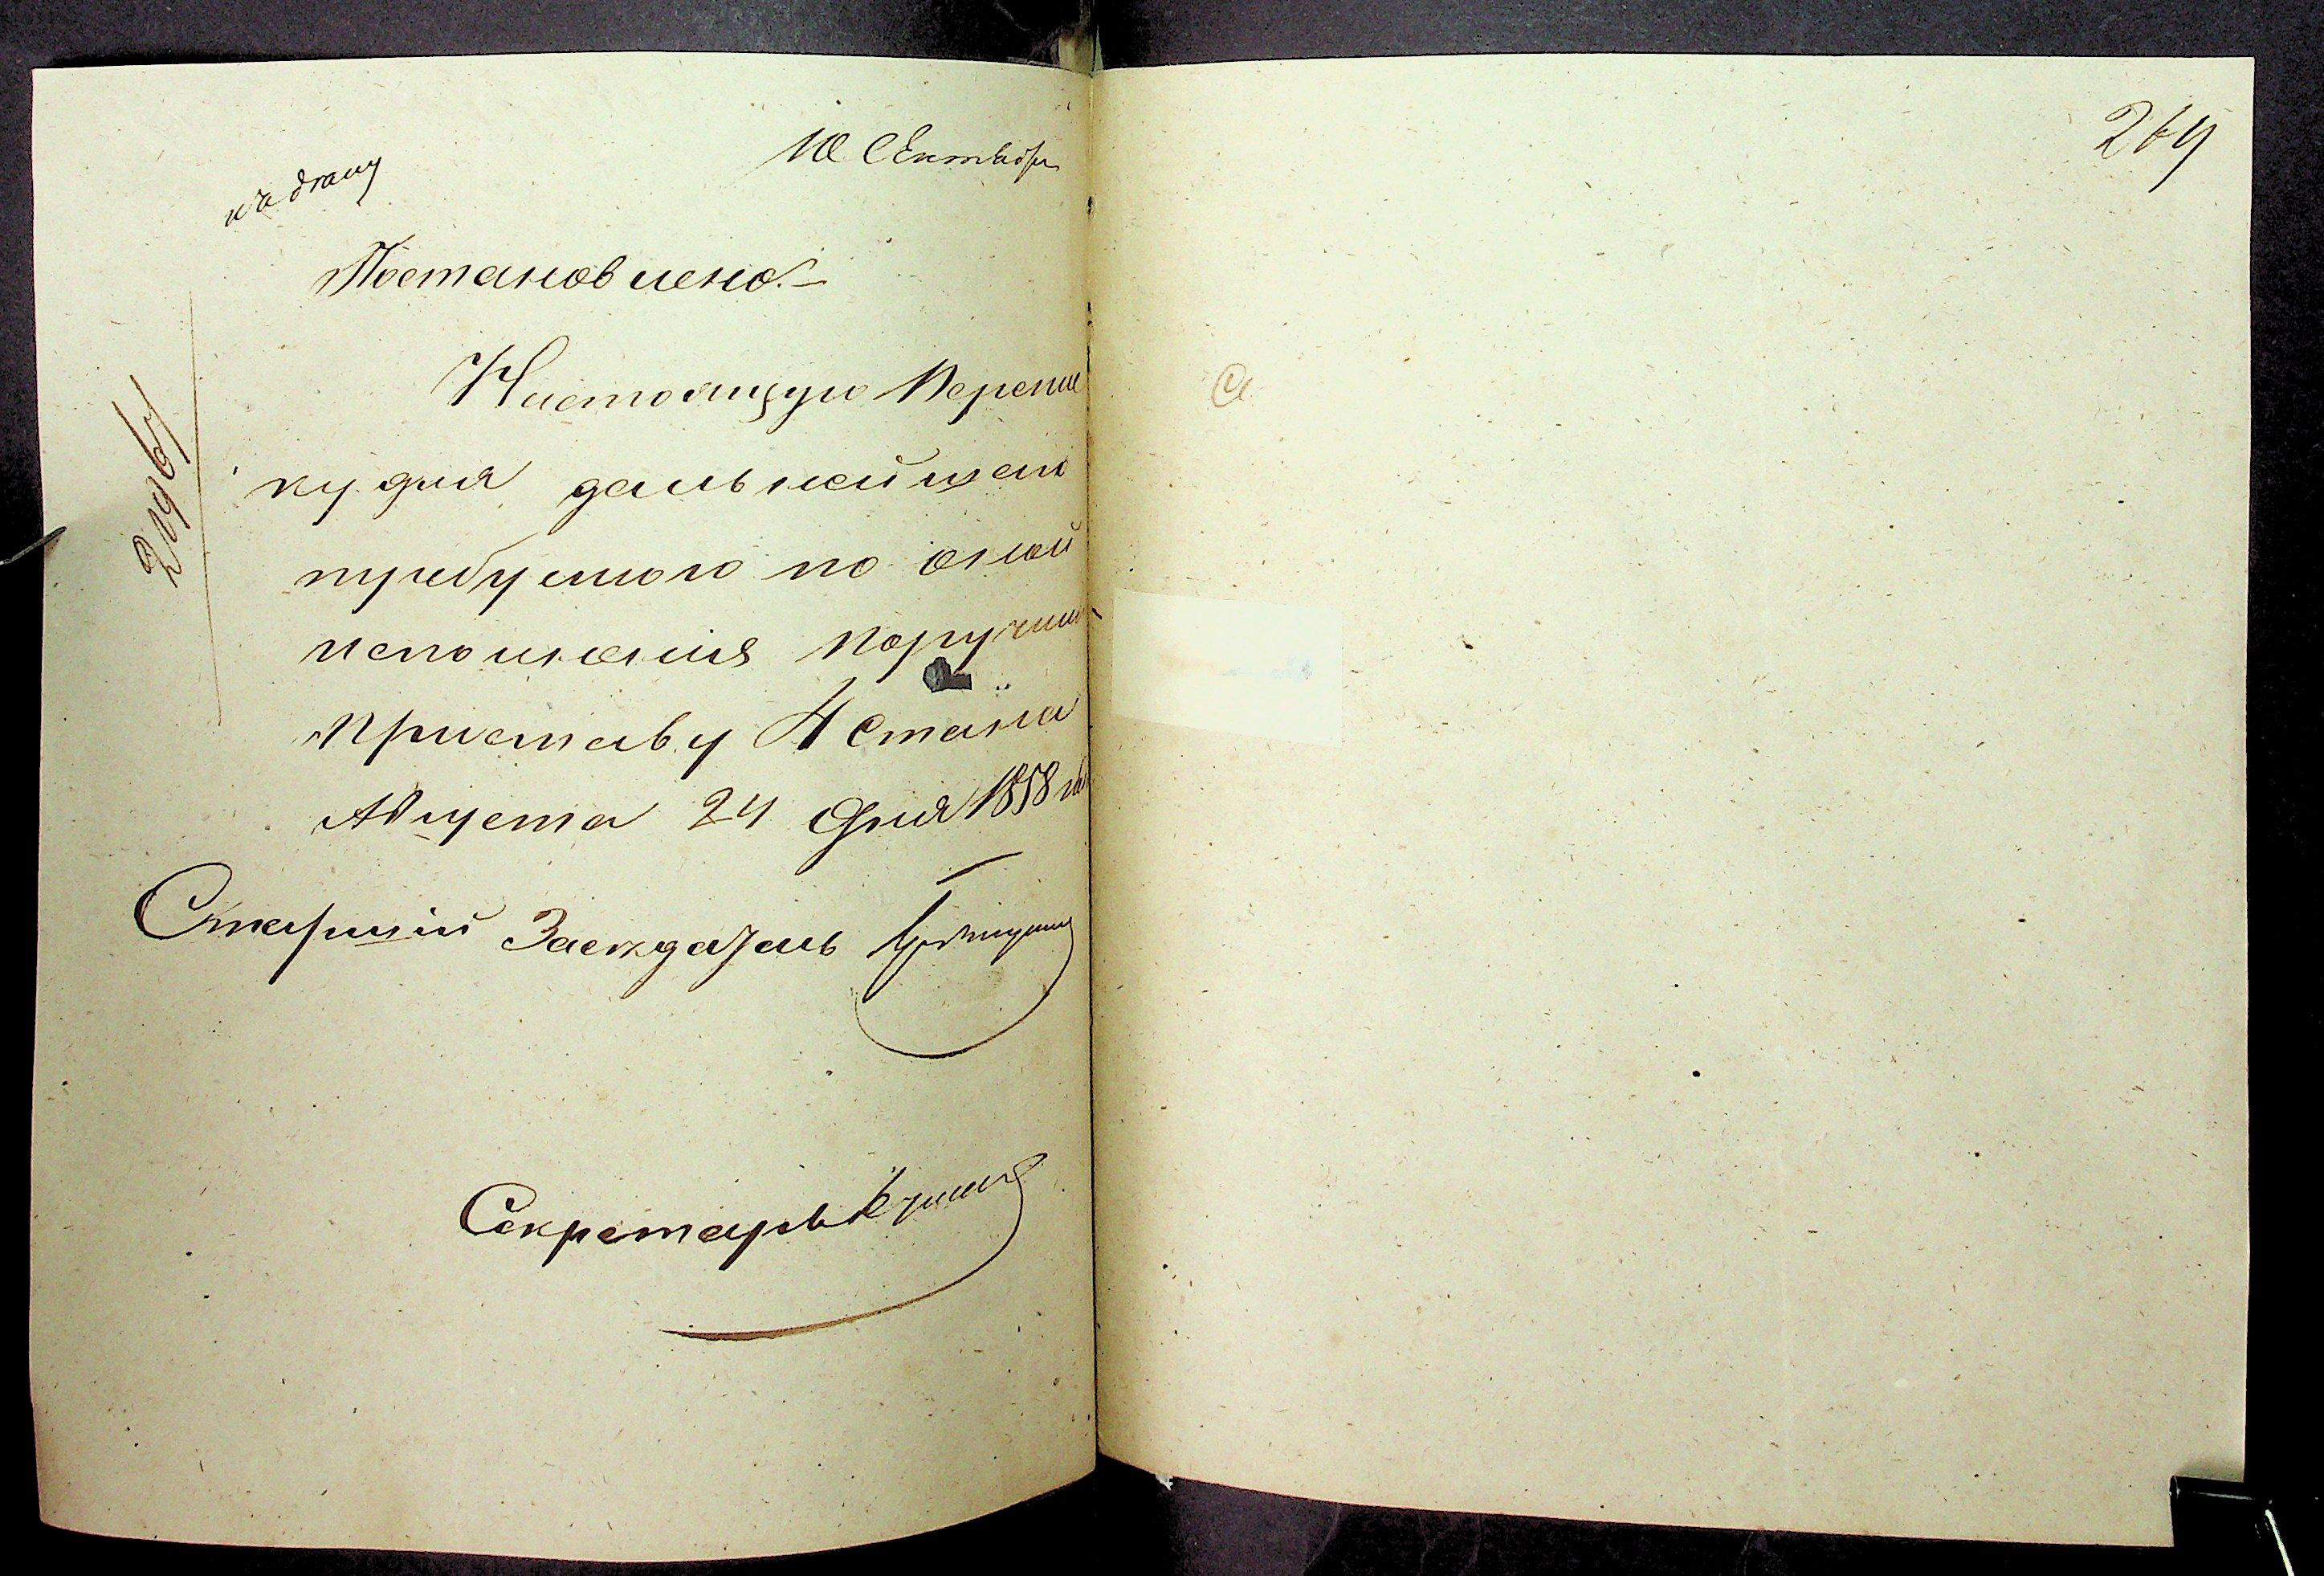 10 Сентября
къ делу
Постановлено:
Настоящую Перепис
ку для дальнейшаго
требуемаго по оной
исполнения поручить
Приставу 4 Стана
Августа 24 дня 1858 года
Старший Заседатель
Секретарь
269